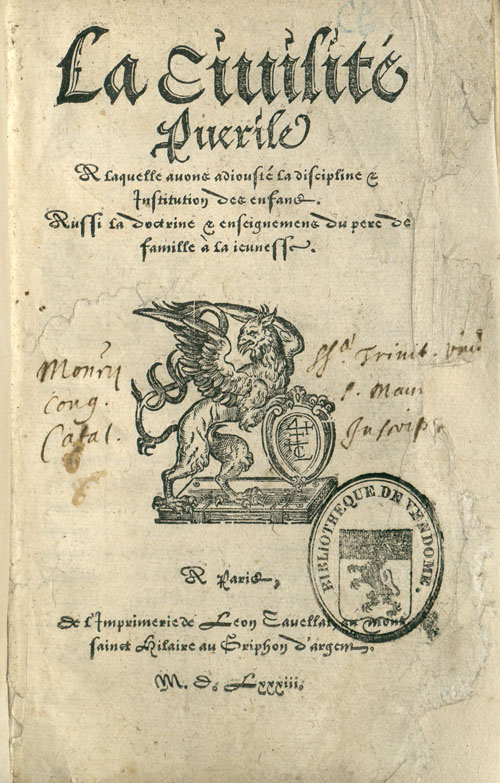 La Ciuilité
Puerile
A laquelle auons adiousté la discipline &
Institution des enfans.
Aussi la doctrine & enseignemens du pere de
famille à la ieunesse.
Cong.
Catal.
Trinit.
Inscrip
BIBLIOTHEQUE DE VENDOME.
A Paris,
De l'Imprimerie de Leon Cauellat, au Mont
sainct Hilaire au Griphon d'argent.
M. D. Lxxxiii.